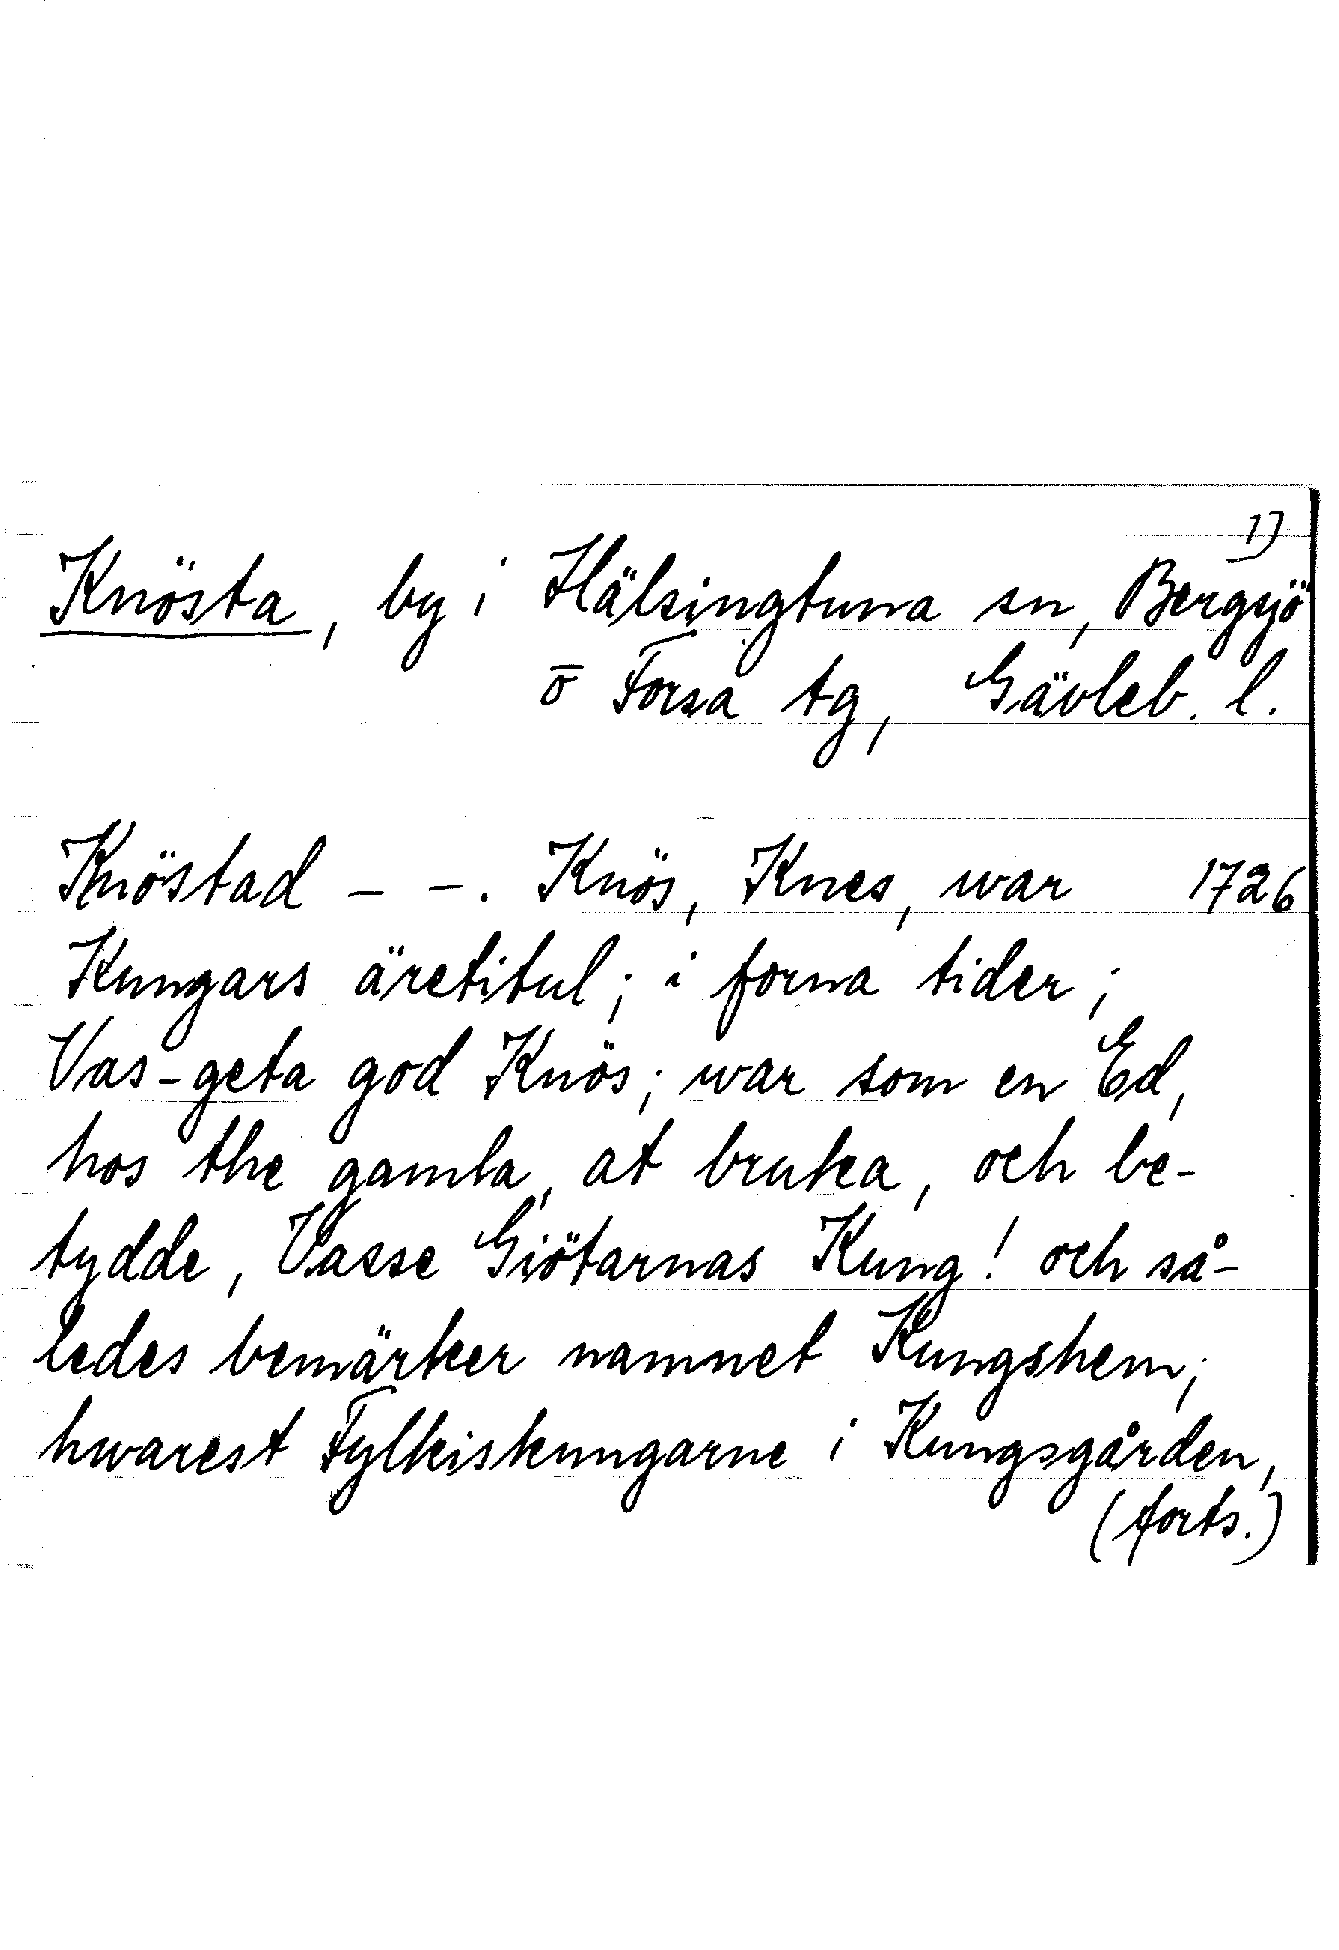 1)
Knösta, by i Hälsingtuna sn, Bergsjö
o Forsa tg, Gävleb. l.
Knöstad – –. Knös, Knes, war 1726
Kungars äretitul; i forna tider;
Vas-geta god Knös; war som en Ed,
hos the gamla, at bruka, och be-
tydde, Vasse Giötarnas Kung! och så-
ledes bemärker namnet Kungshem;
hwarest Fylkiskungarne i Kungsgården,
(forts.)